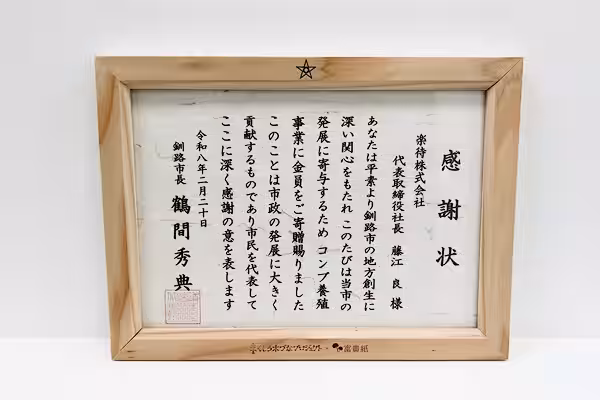 感謝状
楽待株式会社
代表取締役社長 藤江 良 様
あなたは平素より釧路市の地方創生に
深い関心をもたれ このたびは当市の
発展に寄与するため コンブ養殖
事業に金員をご寄贈賜りました
このことは市政の発展に大きく
貢献するものであり市民を代表して
ここに深く感謝の意を表します
令和八年二月二十日
釧路市長 鶴間秀典
くしろ木づなプロジェクト・富貴紙